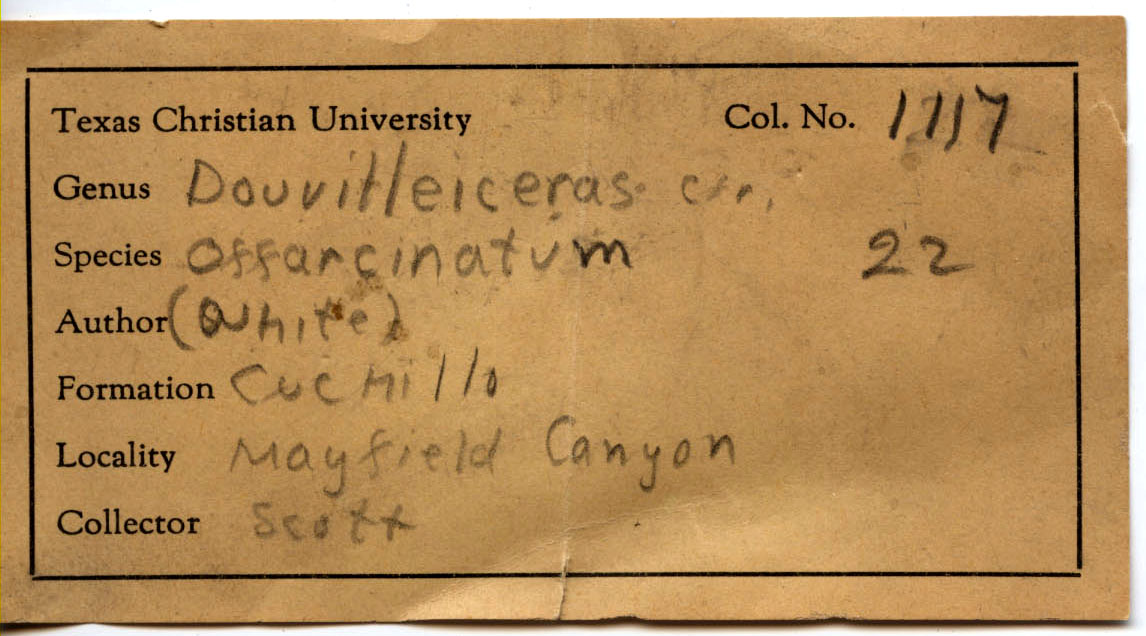 Texas Christian University Col. No. 1717
Genus Douvilleiceras
Species offarcinatum 22
Author (White)
Formation Cuchillo
Locality Mayfield Canyon
Collector Scott